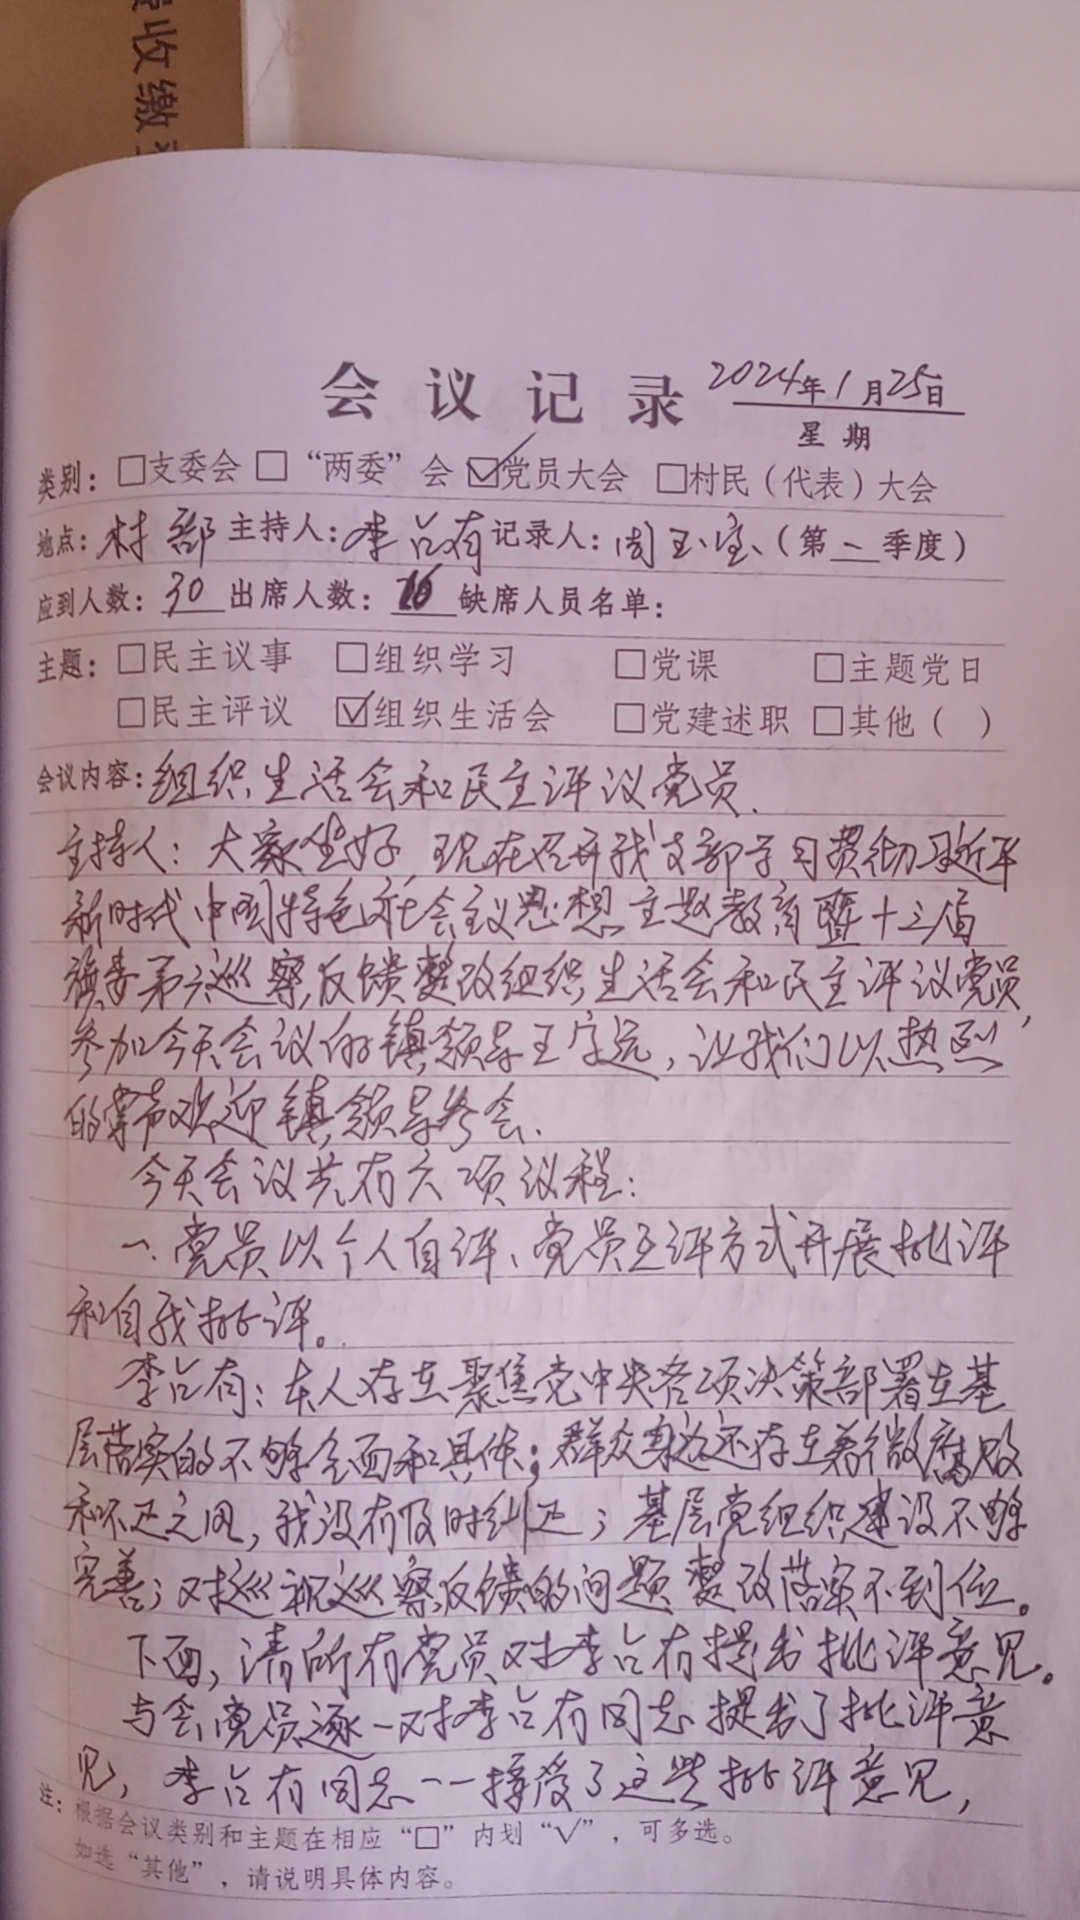 收缴
会议记录 2024年1月25日
星期
类别：□支委会 □“两委”会 ☑党员大会 □村民（代表）大会
地点：村部 主持人：李占有 记录人：周玉宝（第一季度）
应到人数：30 出席人数：26 缺席人员名单：
主题：□民主议事 □组织学习 □党课 □主题党日
□民主评议 ☑组织生活会 □党建述职 □其他（ ）
会议内容：组织生活会和民主评议党员.
主持人：大家坐好，现在召开我支部学习贯彻习近平
新时代中国特色社会主义思想主题教育暨十三届
旗委第六巡察反馈整改组织生活会和民主评议党员，
参加今天会议的镇领导王宇远，让我们以热烈
的掌声欢迎镇领导参会.
今天会议共有六项议程：
一、党员以个人自评、党员互评方式开展批评
和自我批评。
李占有：本人存在聚焦党中央各项决策部署在基
层落实的不够全面和具体；群众身边还存在着微腐败
和不正之风，我没有及时纠正；基层党组织建设不够
完善；对巡视巡察反馈的问题整改落实不到位。
下面，请所有党员对李占有提出批评意见。
与会党员逐一对李占有同志提出了批评意
见，李占有同志一一接受了这些批评意见，
注：根据会议类别和主题在相应“□”内划“√”，可多选。
如选“其他”，请说明具体内容。